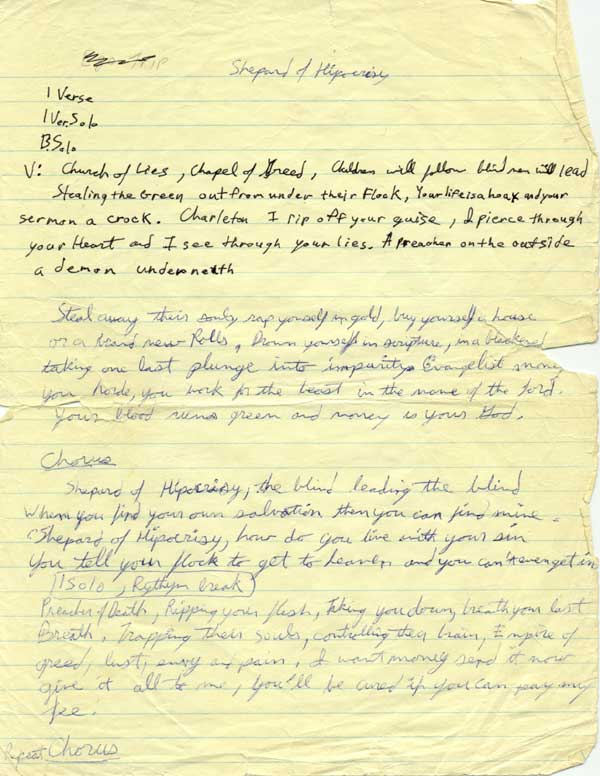 HIP
Shepard of Hipocrisy
1 Verse
1 Ver. Solo
B. Solo
V: Church of Lies, Chapel of Greed, Children will follow blind men will lead
Stealing the Green out from under their Flock, Your life is a hoax and your
sermon a crock. Charleton I rip off your guise, I pierce through
your Heart and I see through your lies. A Preacher on the outside
a demon underneath
Steal away their souls rap yourself in gold, buy yourself a house
or a brand new Rolls, Drown yourself in scripture, in a
taking one last plunge into impurity Evangelist money
you horde, you work for the beast in the name of the lord.
Your blood runs green and money is your God.
Chorus
Shepard of Hipocrisy, the blind leading the blind
When you find your own salvation then you can find mine.
Shepard of Hipocrisy, how do you live with your sin
You tell your flock to get to heaven and you can't even get in
(1 Solo, Rythym break)
Preacher of Death, Ripping your flesh, Taking you down, breath your last
Breath, Trapping their souls, controlling their brain, Empire of
greed, lust, envy and pain, I want money send it now
give it all to me, You'll be cured if you can pay my
fee.
Repeat Chorus